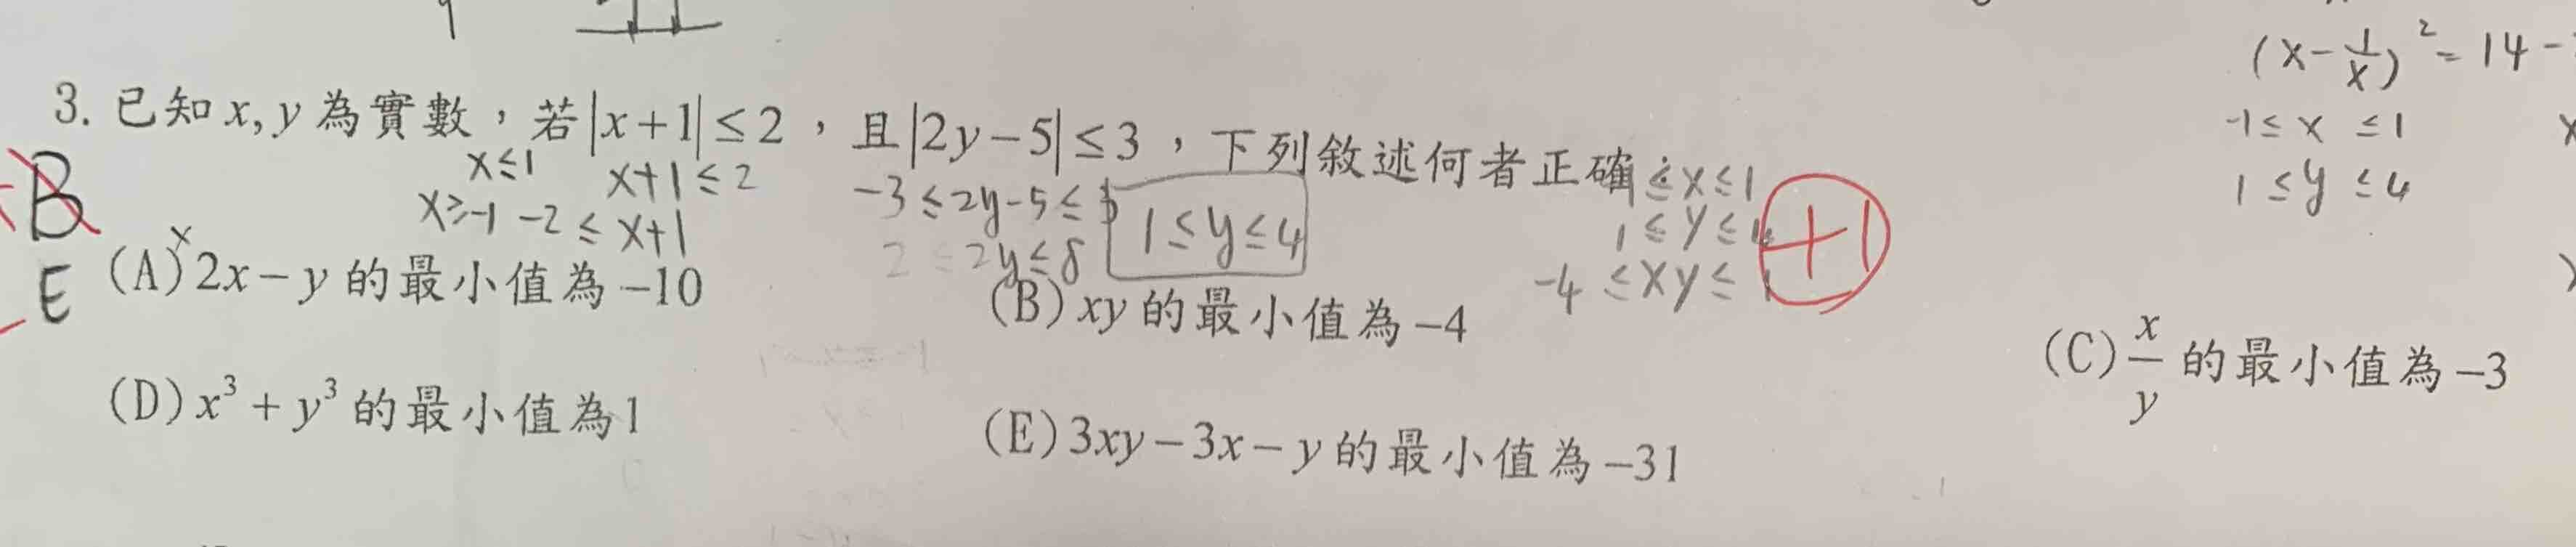 (x-1/x)²=14-
3. 已知x, y為實數，若|x+1|≤2，且|2y-5|≤3，下列敘述何者正確
-1≤x≤1
1≤y≤4
x≤1 x+1≤2
-3≤2y-5≤3
≤x≤1
x≥-1 -2≤x+1
2≤2y≤8
1≤y≤4
1≤y≤4
-4≤xy≤1
+1
B
E
(A) x 2x-y的最小值為-10
(B) xy的最小值為-4
(C) x/y的最小值為-3
(D) x³+y³的最小值為1
(E) 3xy-3x-y的最小值為-31